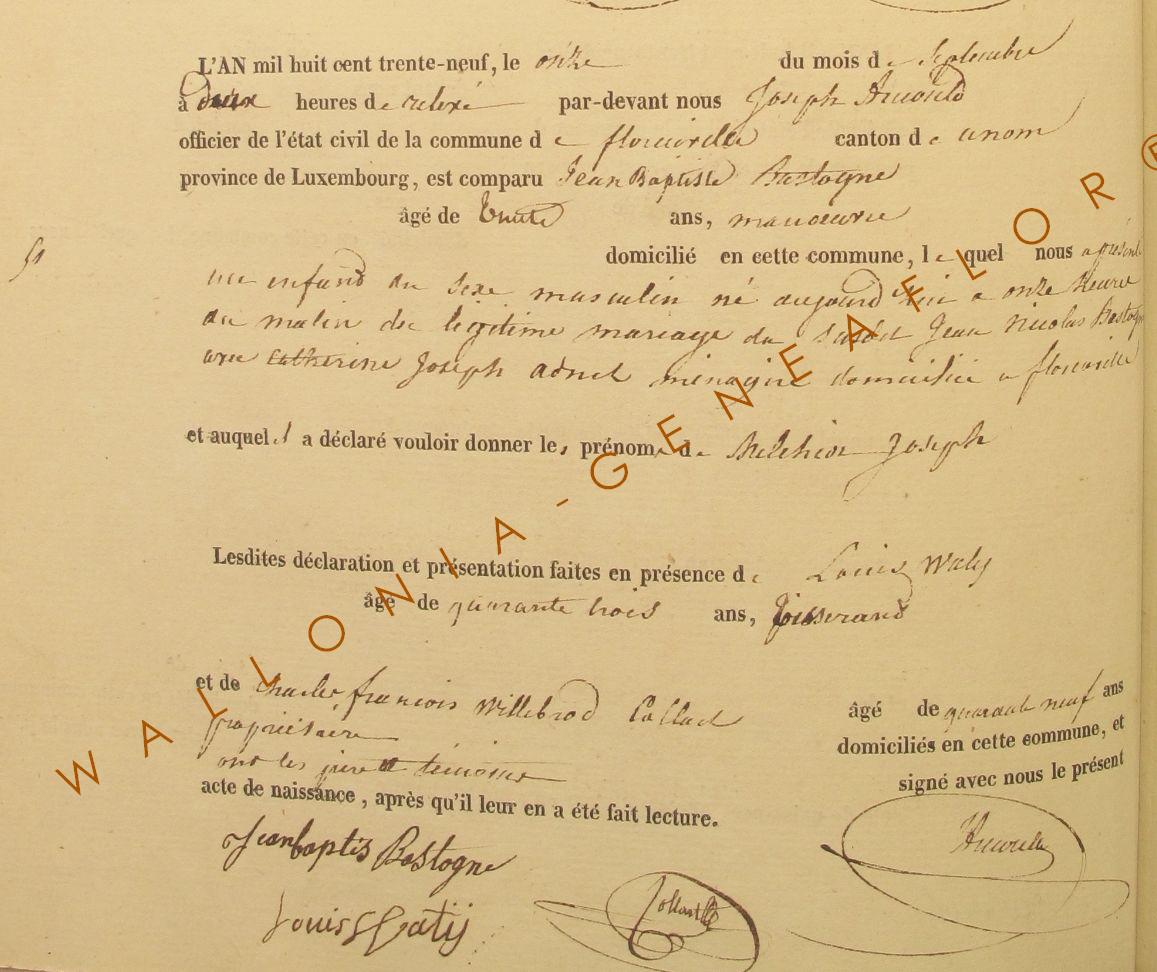 L'AN mil huit cent trente-neuf, le onze du mois de Septembre
à deux heures de relevé par-devant nous Joseph
officier de l'état civil de la commune de florenville canton de
province de Luxembourg, est comparu Jean Baptiste Bastogne
âgé de trente ans, manoeuvre
domicilié en cette commune, lequel nous a présenté
51
un enfand du sexe masculin né aujourd hui a onze heure
du matin du légitime mariage du susdit Jean Nicolas Bastogne
avec Catherine Joseph adnet ménagère domiciliée a florenville
et auquel il a déclaré vouloir donner les prénoms de Melchior Joseph
Lesdites déclaration et présentation faites en présence de Louis Waty
âgé de quarante trois ans, tisserand
et de Charles françois Willebrod Collard âgé de quarante neuf ans
propriétaire
domiciliés en cette commune, et
ont les témoins signé avec nous le présent
acte de naissance, après qu'il leur en a été fait lecture.
Jeanbaptis Bastogne
Louis Watij
Collard
WALLONIA-GENEAFLOR®